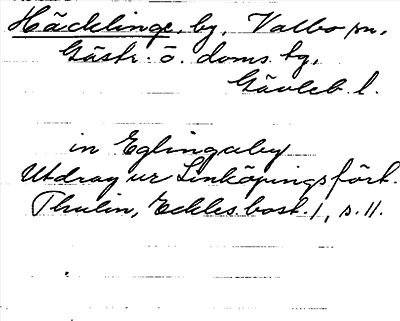 Häcklinge, by, Valbo sn,
Gästr. ö. doms. tg,
Gävleb. l.
in Eglingaby
Utdrag ur Linköpings fört.
Thulin, Eckles. bost. 1, s. 11.